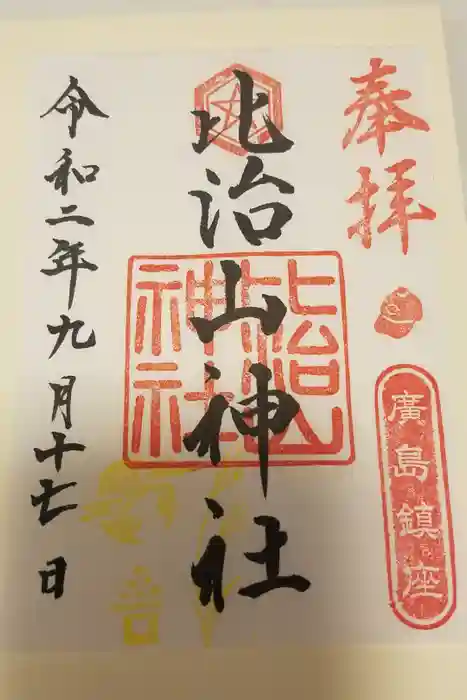 奉拝
廣島鎮座
比治山神社
比治山
神社
令和二年九月十七日